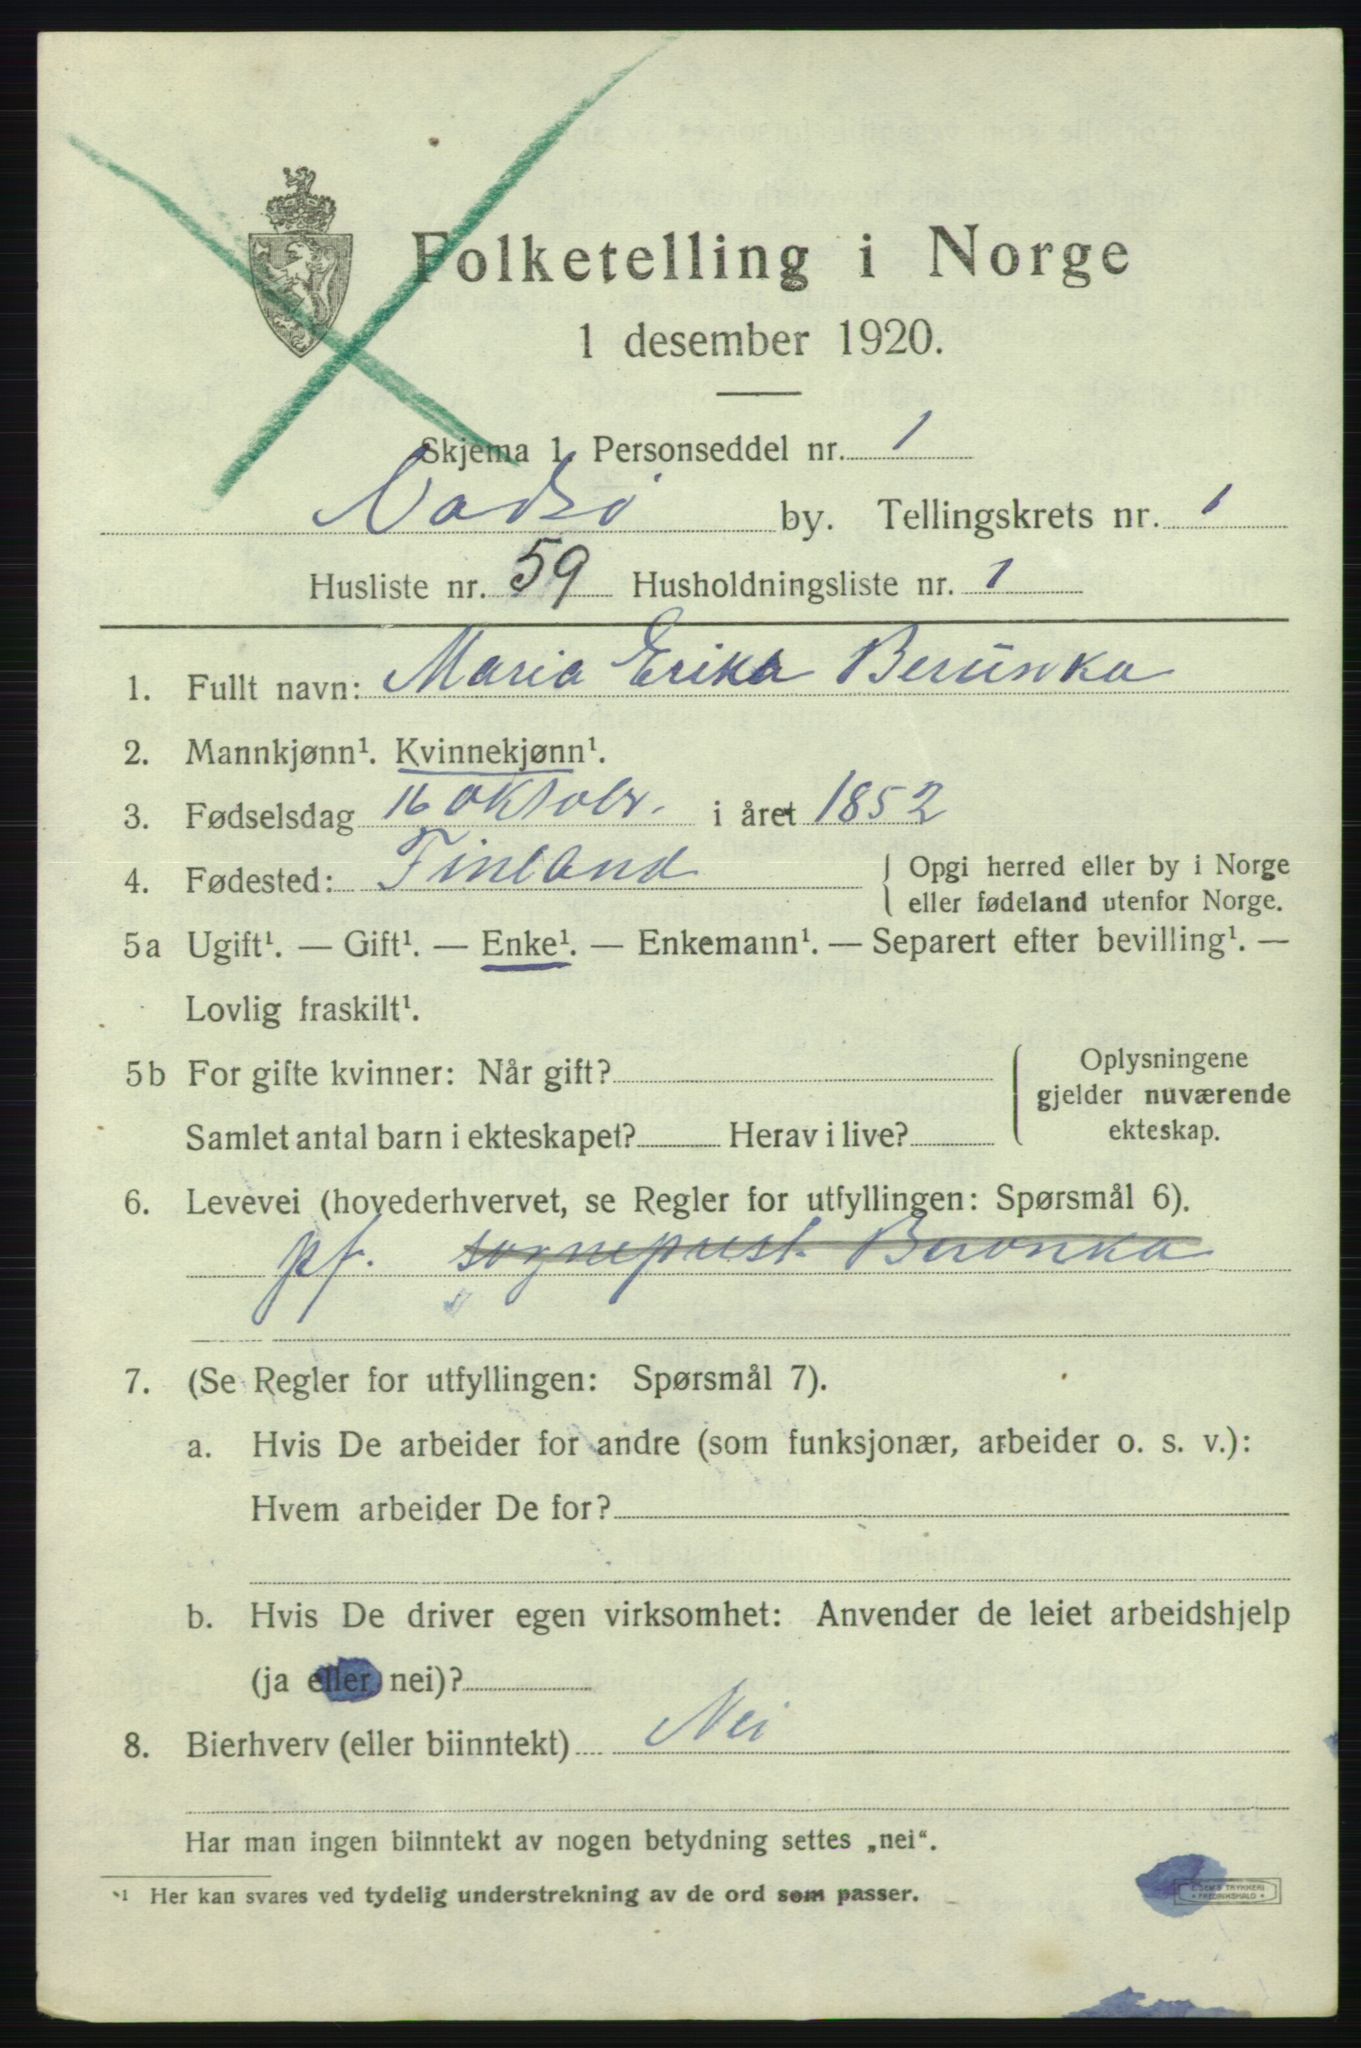 Folketelling i Norge
1 desember 1920.
Skjema 1. Personseddel nr. 1
Vadsø by. Tellingskrets nr. 1
Husliste nr. 59 Husholdningsliste nr. 1
1. Fullt navn: Maria Erika Berünka
2. Mannkjønn¹. Kvinnekjønn¹.
3. Fødselsdag 16 oktobr. i året 1852
4. Fødested: Finland { Opgi herred eller by i Norge
eller fødeland utenfor Norge.
5a Ugift¹. — Gift¹. — Enke¹. — Enkemann¹. — Separert efter bevilling¹. —
Lovlig fraskilt¹.
5b For gifte kvinner: Når gift? { Oplysningene
gjelder nuværende
Samlet antal barn i ekteskapet? Herav i live? ekteskap.
6. Levevei (hovederhvervet, se Regler for utfyllingen: Spørsmål 6).
pf. sogneprest. Beronka
7. (Se Regler for utfyllingen: Spørsmål 7).
a. Hvis De arbeider for andre (som funksjonær, arbeider o. s. v.):
Hvem arbeider De for?
b. Hvis De driver egen virksomhet: Anvender de leiet arbeidshjelp
(ja eller nei)?
8. Bierhverv (eller biinntekt) Nei
Har man ingen biinntekt av nogen betydning settes „nei“.
¹ Her kan svares ved tydelig understrekning av de ord som passer.
TRYKKERI
FREDRIKSHALD